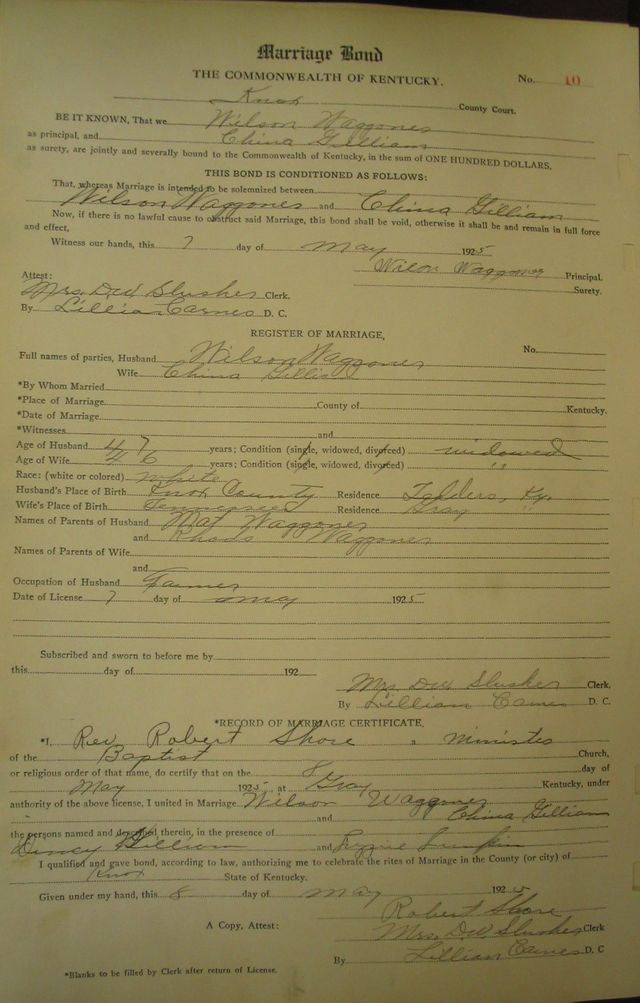 Marriage Bond
THE COMMONWEALTH OF KENTUCKY. No. 10
Knox County Court.
BE IT KNOWN, That we Wilson Waggoner
as principal, and China Gilliam
as surety, are jointly and severally bound to the Commonwealth of Kentucky, in the sum of ONE HUNDRED DOLLARS.
THIS BOND IS CONDITIONED AS FOLLOWS:
That, whereas Marriage is intended to be solemnized between
Wilson Waggoner and China Gilliam
Now, if there is no lawful cause to obstruct said Marriage, this bond shall be void, otherwise it shall be and remain in full force
and effect,
Witness our hands, this 7 day of May 1925
Wilson Waggoner Principal.
Attest: Surety.
Mrs. D.W. Slusher Clerk.
By Lillian Carnes D. C.
REGISTER OF MARRIAGE,
Full names of parties, Husband Wilson Waggoner No.
Wife China Gilliam
*By Whom Married
*Place of Marriage County of Kentucky.
*Date of Marriage
*Witnesses and
Age of Husband 47 years; Condition (single, widowed, divorced) widowed
Age of Wife 46 years; Condition (single, widowed, divorced) "
Race: (white or colored) white
Husband's Place of Birth Knox County Residence Tedders, Ky.
Wife's Place of Birth Tennessee Residence Gray "
Names of Parents of Husband Mat Waggoner
and Rhoda Waggoner
Names of Parents of Wife
and
Occupation of Husband Farmer
Date of License 7 day of May 1925
Subscribed and sworn to before me by
this day of 192
Mrs. D.W. Slusher Clerk,
By Lillian Carnes D. C.
*RECORD OF MARRIAGE CERTIFICATE.
*I, Rev Robert Shore a minister
of the Baptist Church,
or religious order of that name, do certify that on the 8 day of
May 1925 at Gray Kentucky, under
authority of the above license, I united in Marriage Wilson Waggoner
and China Gilliam
the persons named and described therein, in the presence of
Gilliam and
I qualified and gave bond, according to law, authorizing me to celebrate the rites of Marriage in the County (or city) of
Knox State of Kentucky.
Given under my hand, this 8 day of May 1925
Robert Shore
A Copy, Attest: Mrs. D.W. Slusher Clerk
By Lillian Carnes D. C
*Blanks to be filled by Clerk after return of License.